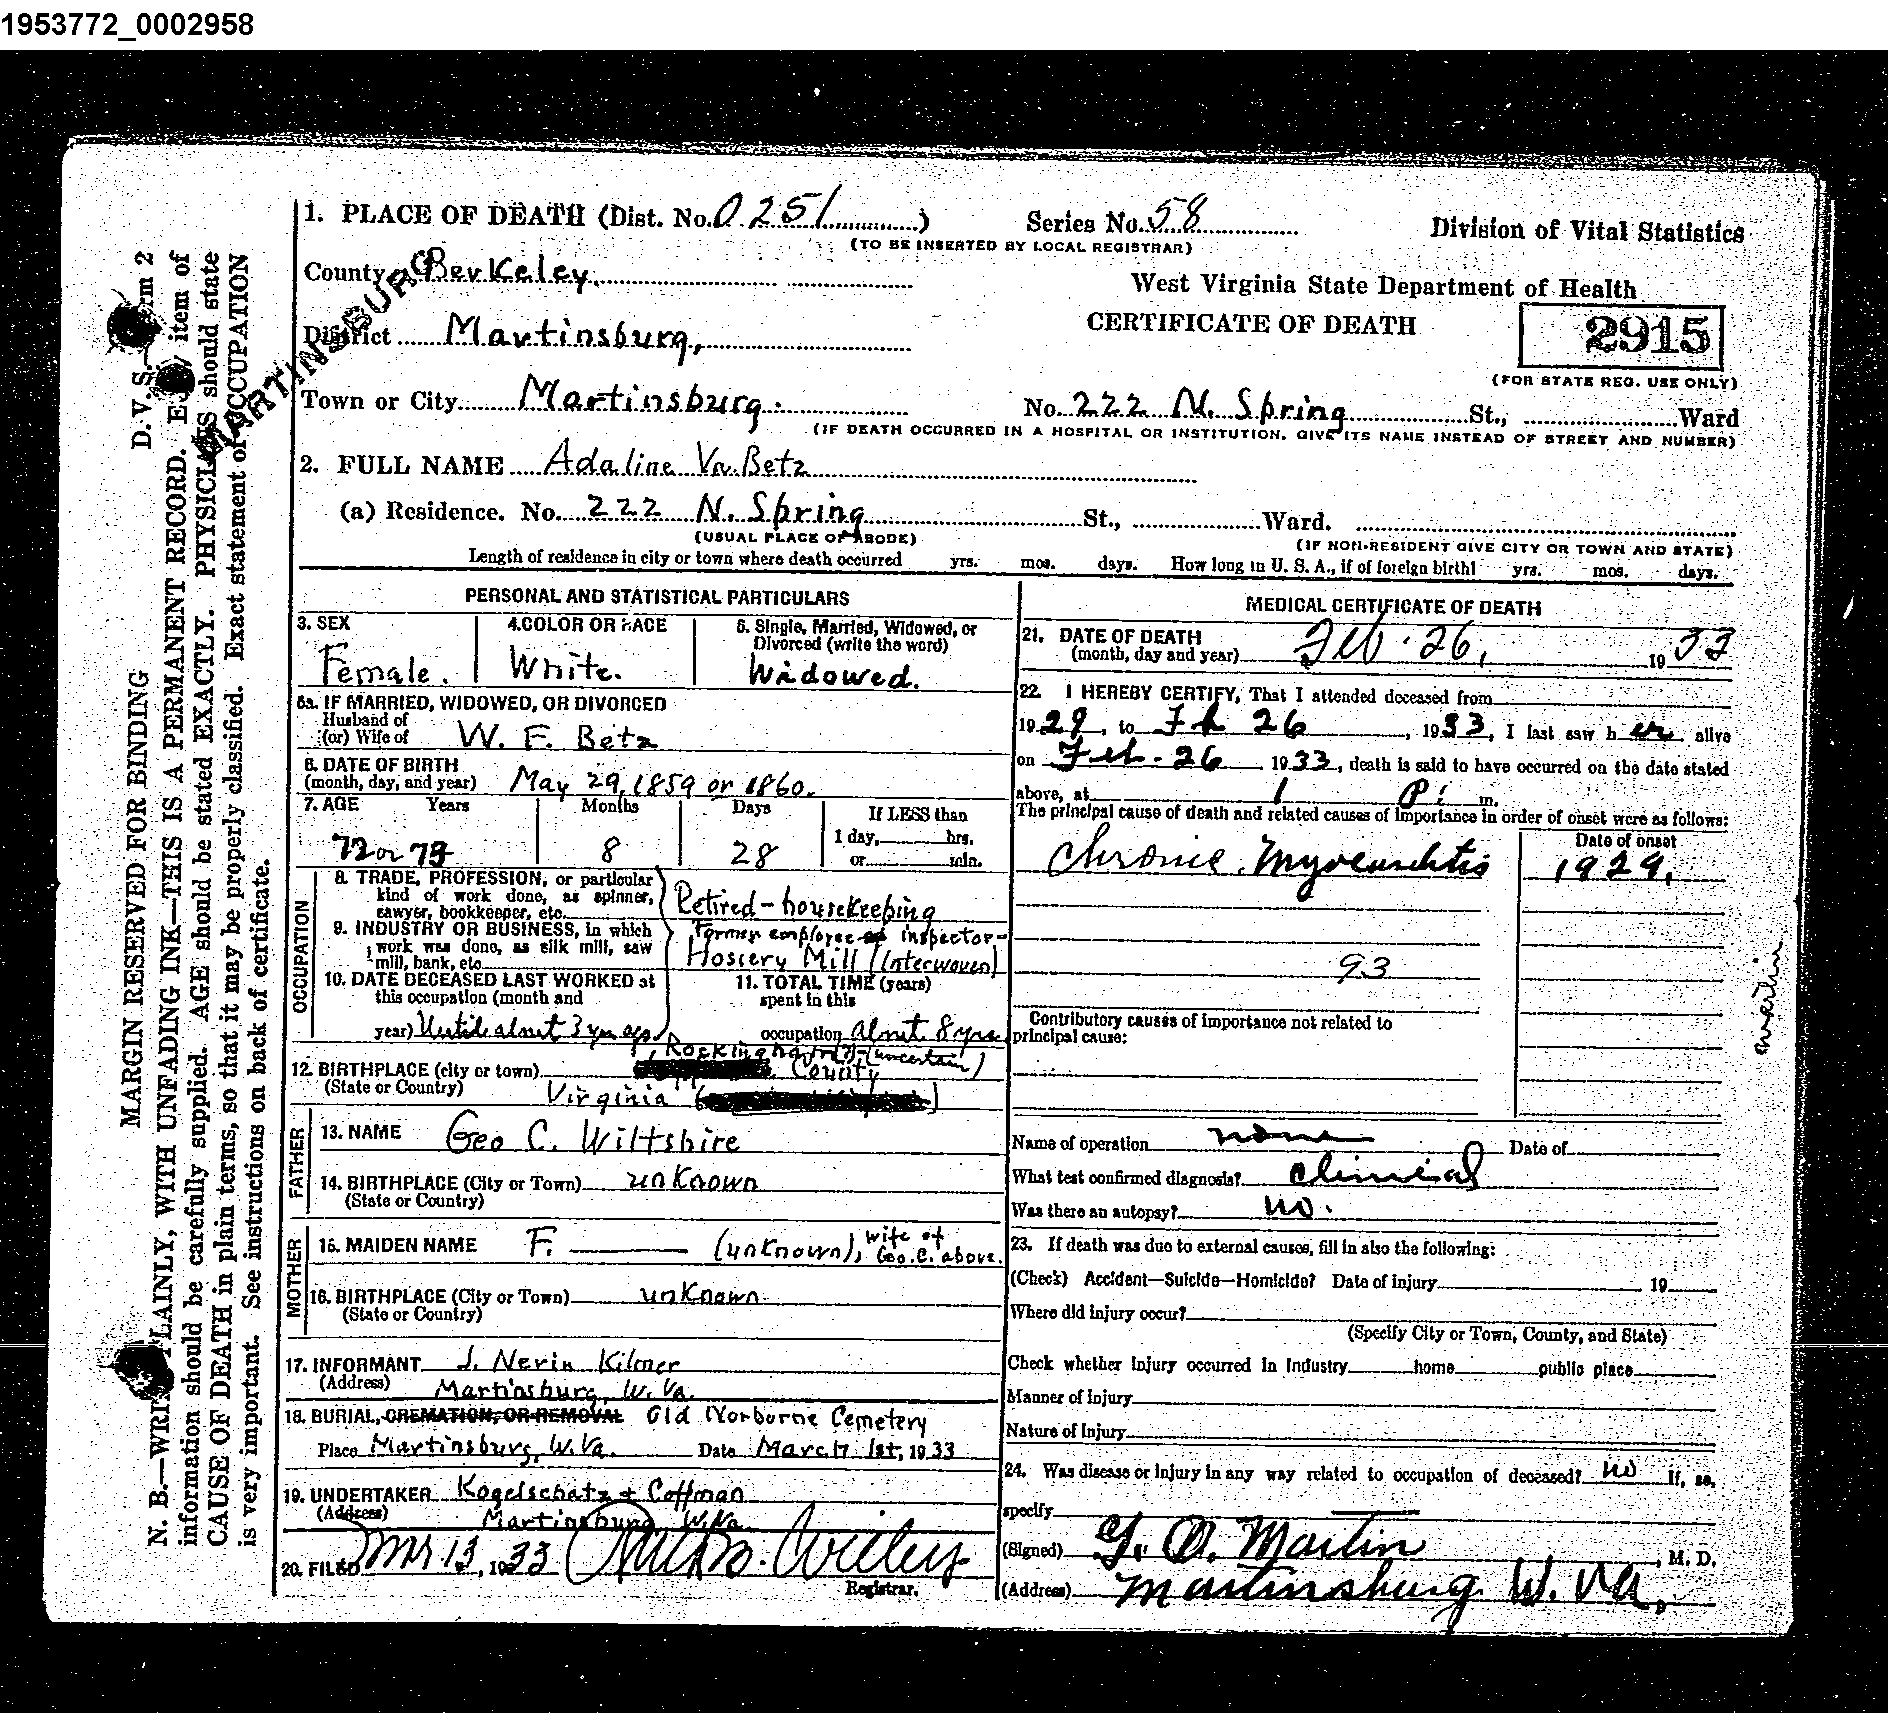 1953772_0002958
1. PLACE OF DEATH (Dist. No. 0251) Series No. 58 Division of Vital Statistics
(TO BE INSERTED BY LOCAL REGISTRAR)
County Berkeley.
MARTINSBURG
West Virginia State Department of Health
CERTIFICATE OF DEATH
2915
(FOR STATE REG. USE ONLY)
District Martinsburg,
Town or City Martinsburg. No. 222 N. Spring St., Ward
(IF DEATH OCCURRED IN A HOSPITAL OR INSTITUTION, GIVE ITS NAME INSTEAD OF STREET AND NUMBER)
2. FULL NAME Adaline Va. Betz
(a) Residence. No. 222 N. Spring St., Ward.
(USUAL PLACE OF ABODE) (IF NON-RESIDENT GIVE CITY OR TOWN AND STATE)
Length of residence in city or town where death occurred yrs. mos. days. How long in U. S. A., if of foreign birth? yrs. mos. days.
PERSONAL AND STATISTICAL PARTICULARS
3. SEX 4. COLOR OR RACE 5. Single, Married, Widowed, or
Divorced (write the word)
Female. White. Widowed.
5a. IF MARRIED, WIDOWED, OR DIVORCED
Husband of
(or) Wife of W. F. Betz
6. DATE OF BIRTH
(month, day, and year) May 29, 1859 or 1860.
7. AGE Years Months Days If LESS than
1 day, hrs.
or min.
72 or 73 8 28
OCCUPATION
8. TRADE, PROFESSION, or particular
kind of work done, as spinner,
sawyer, bookkeeper, etc. Retired - housekeeping
9. INDUSTRY OR BUSINESS, in which
work was done, as silk mill, saw
mill, bank, etc.
Former employee as inspector-
Hosiery Mill (Interwoven)
10. DATE DECEASED LAST WORKED at
this occupation (month and
year) Until about 3 yrs ago
11. TOTAL TIME (years)
spent in this
occupation about 8 yrs.
12. BIRTHPLACE (city or town) Rockingham (?) (uncertain)
County
(State or Country) Virginia
FATHER
13. NAME Geo C. Wiltshire
14. BIRTHPLACE (City or Town) unknown
(State or Country)
MOTHER
15. MAIDEN NAME F. (unknown), wife of
Geo. C. above.
16. BIRTHPLACE (City or Town) unknown
(State or Country)
17. INFORMANT J. Nevin Kilmer
(Address) Martinsburg, W. Va.
18. BURIAL, CREMATION, OR REMOVAL Old Norborne Cemetery
Place Martinsburg, W. Va. Date March 1st, 1933
19. UNDERTAKER Kogelschatz & Coffman
(Address) Martinsburg W. Va.
20. FILED Mar 13, 1933
Registrar.
MEDICAL CERTIFICATE OF DEATH
21. DATE OF DEATH
(month, day and year) Feb. 26, 1933
22. I HEREBY CERTIFY, That I attended deceased from
1929, to Feb 26, 1933, I last saw h er alive
on Feb. 26 1933, death is said to have occurred on the date stated
above, at 1 P. m.
The principal cause of death and related causes of importance in order of onset were as follows:
Date of onset
Chronic Myocarditis 1929.
93
Contributory causes of importance not related to
principal cause:
Martin
Name of operation none Date of
What test confirmed diagnosis? Clinical
Was there an autopsy? no.
23. If death was due to external causes, fill in also the following:
(Check) Accident—Suicide—Homicide? Date of injury 19
Where did injury occur?
(Specify City or Town, County, and State)
Check whether injury occurred in industry home public place
Manner of injury
Nature of injury
24. Was disease or injury in any way related to occupation of deceased? no If, so,
specify
(Signed) G. O. Martin, M. D.
(Address) Martinsburg W. Va.
D. V. S. Form 2
MARGIN RESERVED FOR BINDING
N. B.—WRITE PLAINLY, WITH UNFADING INK—THIS IS A PERMANENT RECORD. Every item of
information should be carefully supplied. AGE should be stated EXACTLY. PHYSICIANS should state
CAUSE OF DEATH in plain terms, so that it may be properly classified. Exact statement of OCCUPATION
is very important. See instructions on back of certificate.